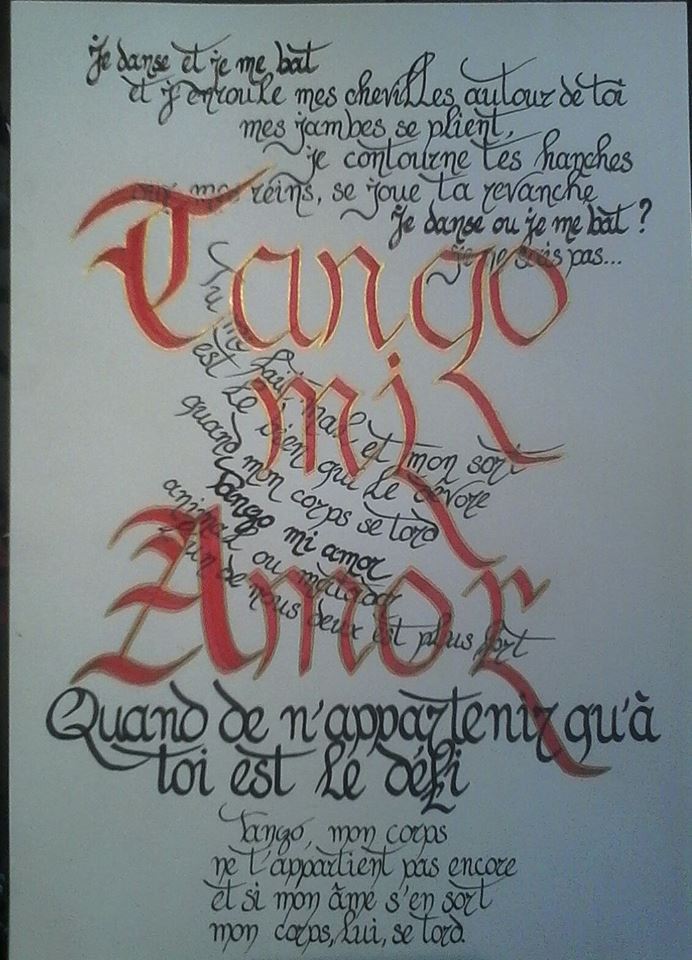 Je danse et je me bat
et j'enroule mes chevilles autour de toi
mes jambes se plient,
je contourne tes hanches
sur mes reins, se joue ta revanche
Je danse ou je me bat ?
je ne sais pas...
Tango
mi
Amor
Tu me fait mal et mon sort
est le bien qui le dévore
quand mon corps se tord
Tango mi amor
animal ou matador
l'un de nous deux est plus fort
Quand de n'appartenir qu'à
toi est le défi
Tango, mon corps
ne t'appartient pas encore
et si mon âme s'en sort
mon corps, lui, se tord.